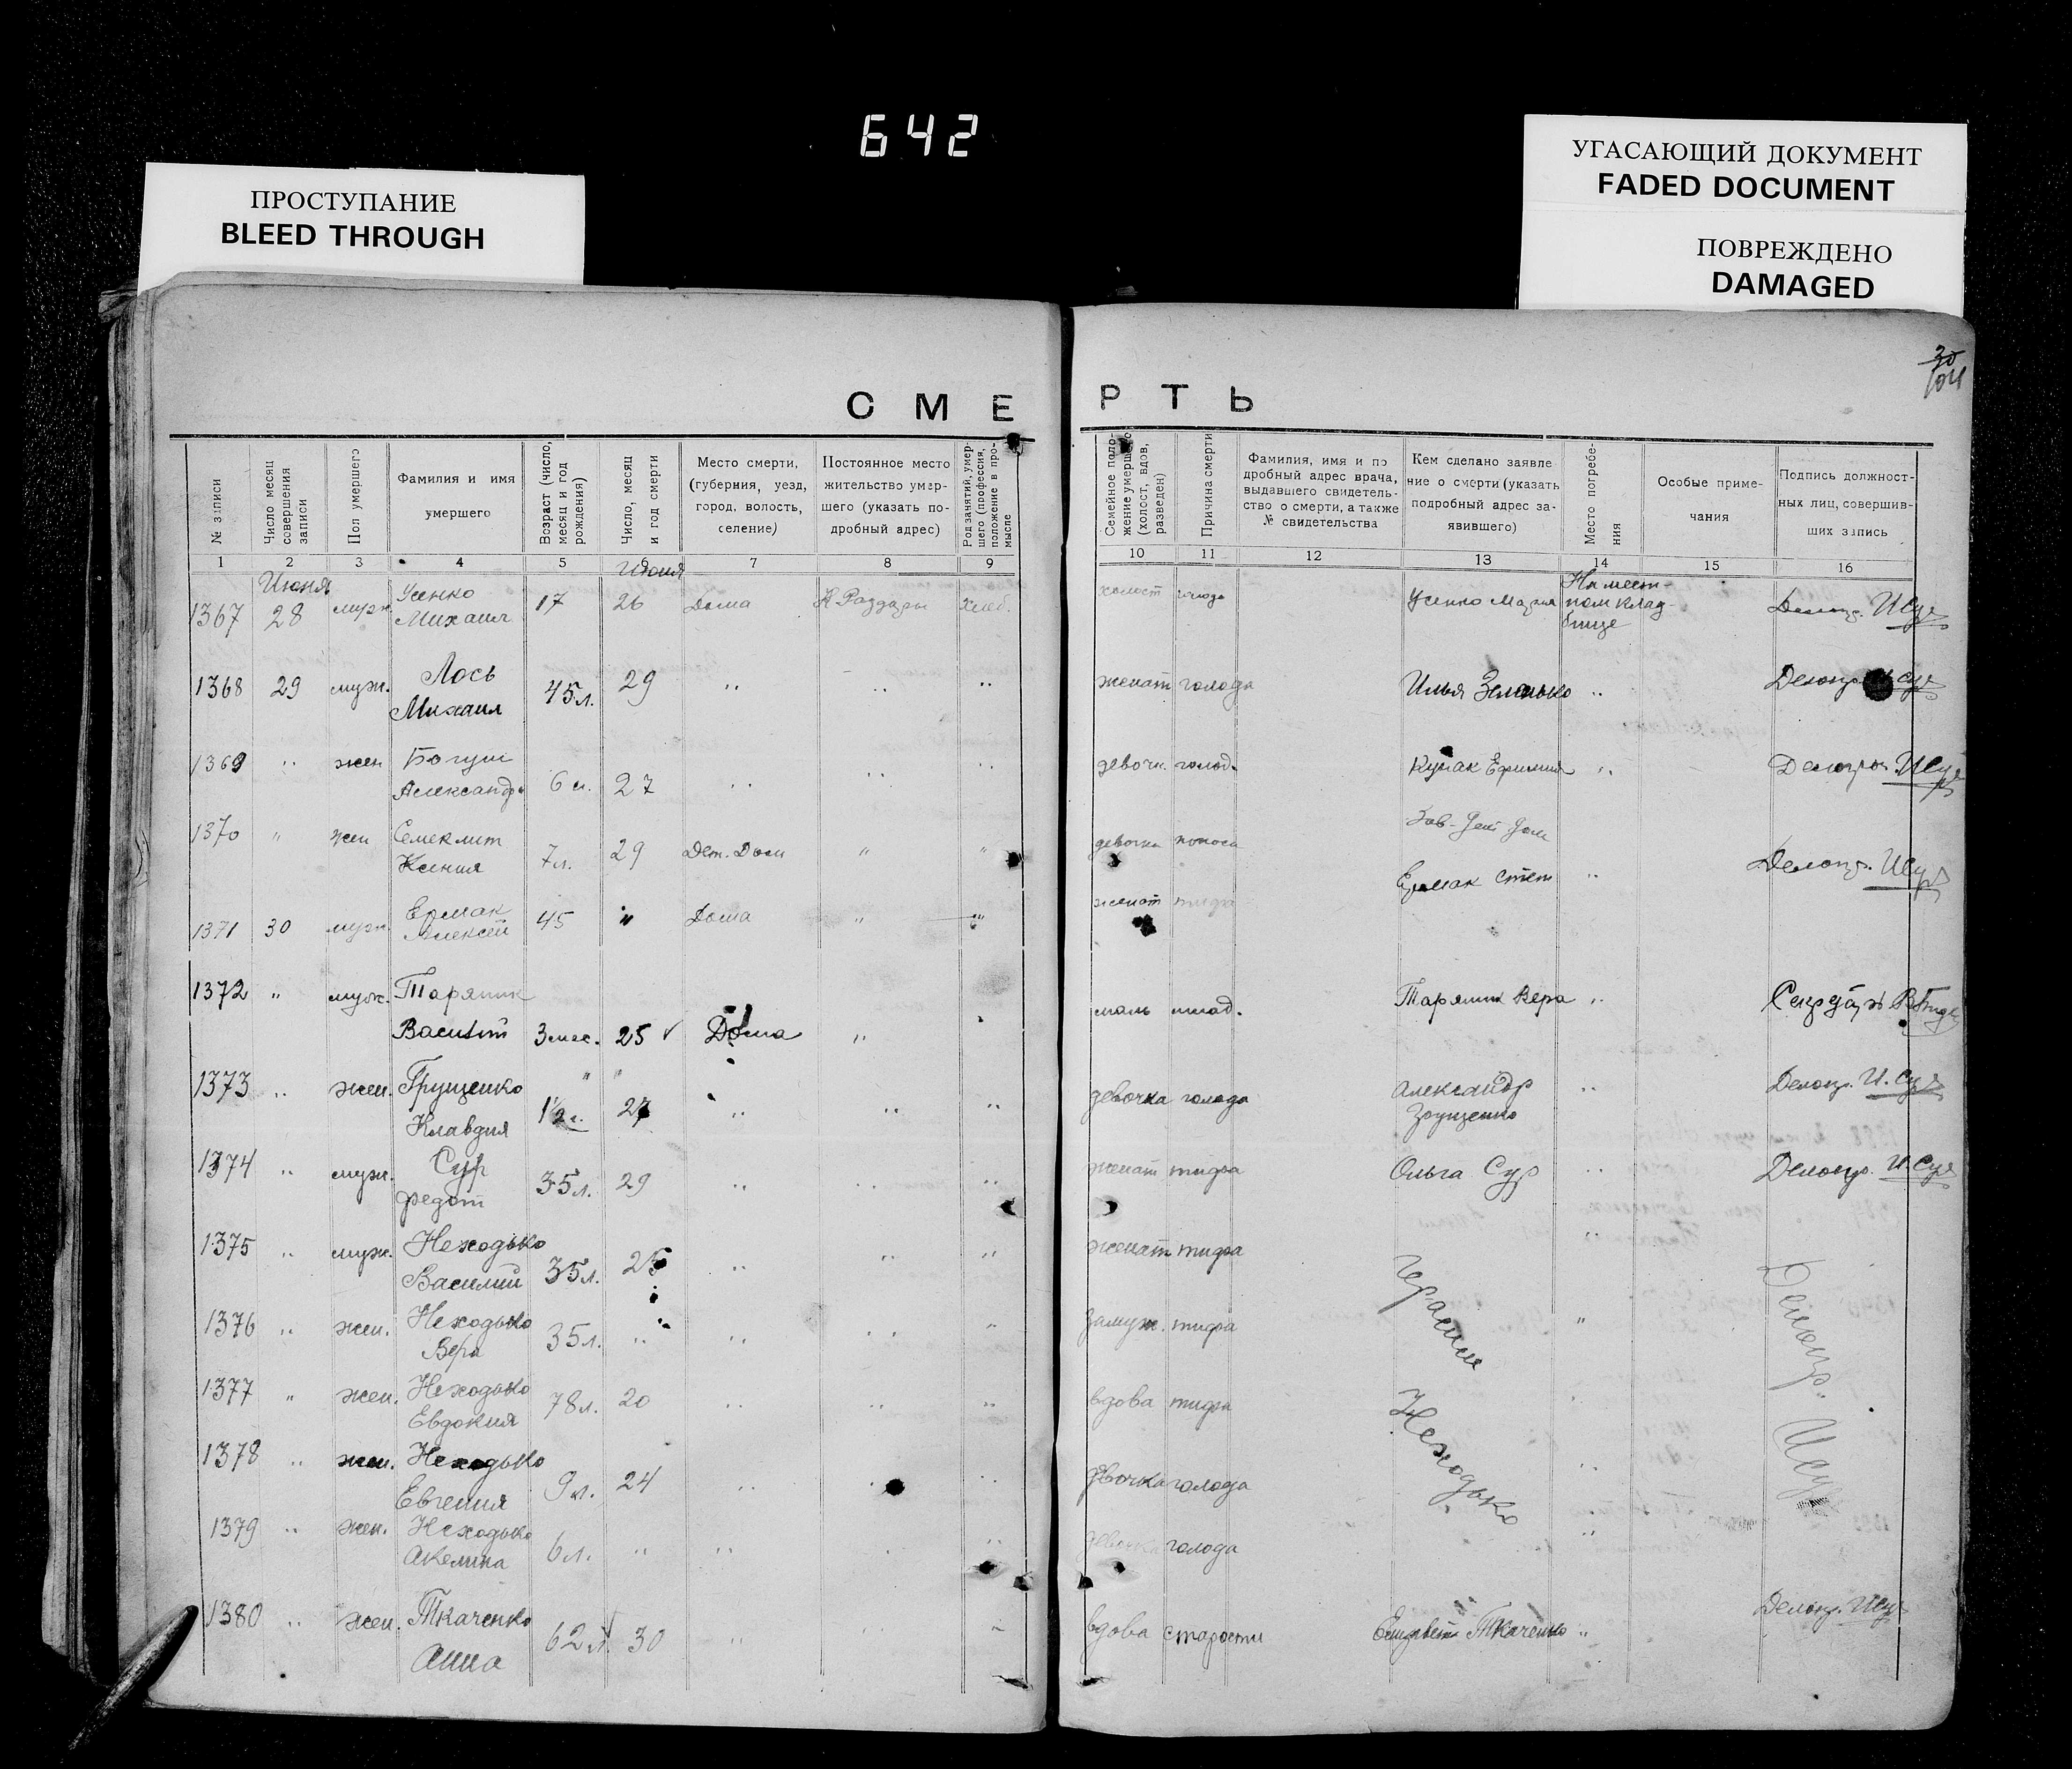 642
ПРОСТУПАНИЕ
BLEED THROUGH
УГАСАЮЩИЙ ДОКУМЕНТ
FADED DOCUMENT
ПОВРЕЖДЕНО
DAMAGED
30
104
СМЕ РТЬ
№ записи
Число месяц совершения записи
Пол умершего
Фамилия и имя умершего
Возраст (число, месяц и год рождения)
Число, месяц и год смерти
Место смерти, (губерния, уезд, город, волость, селение)
Постоянное место жительство умершего (указать подробный адрес)
Род занятий, умершего (профессия, положение в промысле
Семейное положение умершего (холост, вдов, разведен)
Причина смерти
Фамилия, имя и подробный адрес врача, выдавшего свидетельство о смерти, а также № свидетельства
Кем сделано заявление о смерти (указать подробный адрес заявившего)
Место погребения
Особые примечания
Подпись должностных лиц, совершивших запись
1 2 3 4 5 6 7 8 9 10 11 12 13 14 15 16
Июня Июня
1367 28 муж Усенко Михаил 17 26 Дома Раздоры хлеб. холост голода Усенко Мария На местном кладбище Делопр. ИСур
1368 29 муж. Лось Михаил 45 л. 29 " " " женат голода Илья Зеленько " Делопр. И Сур
1369 " жен Богуш Александр 6 л. 27 " " " девочк. голод. Кулак Ефимия " Делопр. ИСур
1370 " жен Ксения 7 л. 29 Дет. Дом " " девочка поноса Зав. Дет Дом Делопр. ИСур
1371 30 муж Ермак Алексей 45 " Дома " " женат тифа Ермак Степ "
1372 " муж. Таряник Василий 3 мес. 25 Дома " " маль млад. Таряник Вера "
1373 " жен. Грущенко Клавдия 1½ г. 27 " " " девочка голода Александр Грущенко " Делопр. И. Сур
1374 " муж. Сур Федот 35 л. 29 " " " женат тифа Ольга Сур " Делопр. И. Сур
1375 " муж. Неходько Василий 35 л. 25 " " " женат тифа Герасим Неходько " Делопр. ИСур
1376 " жен. Неходько Вера 35 л. " " " " замуж. тифа "
1377 " жен. Неходько Евдокия 78 л. 20 " " " вдова тифа "
1378 " жен. Неходько Евгения 9 л. 24 " " " девочка голода "
1379 " жен. Неходько Акелина 6 л. " " " " девочка голода "
1380 " жен. Ткаченко Анна 62 л. 30 " " " вдова старости Елизавета Ткаченко " Делопр. ИСур